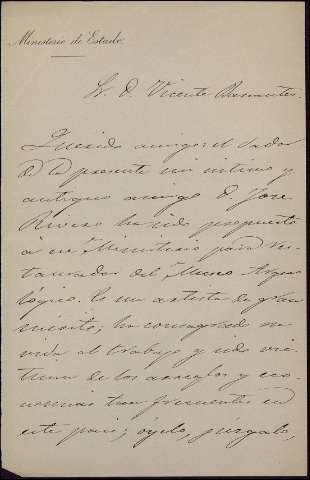 Ministerio de Estado.
Sr. D. Vicente Barrantes.
Querido amigo: el dador
de la presente mi íntimo y
antiguo amigo D. José
Rivero ha sido propuesto
á ese Ministerio para res-
taurador del Museo Arqueo-
lógico. Es un artista de gran
mérito; ha consagrado su
vida al trabajo y sido víc-
tima de los arreglos y eco-
nomias tan frecuentes en
este pais; óyelo, juzgalo,